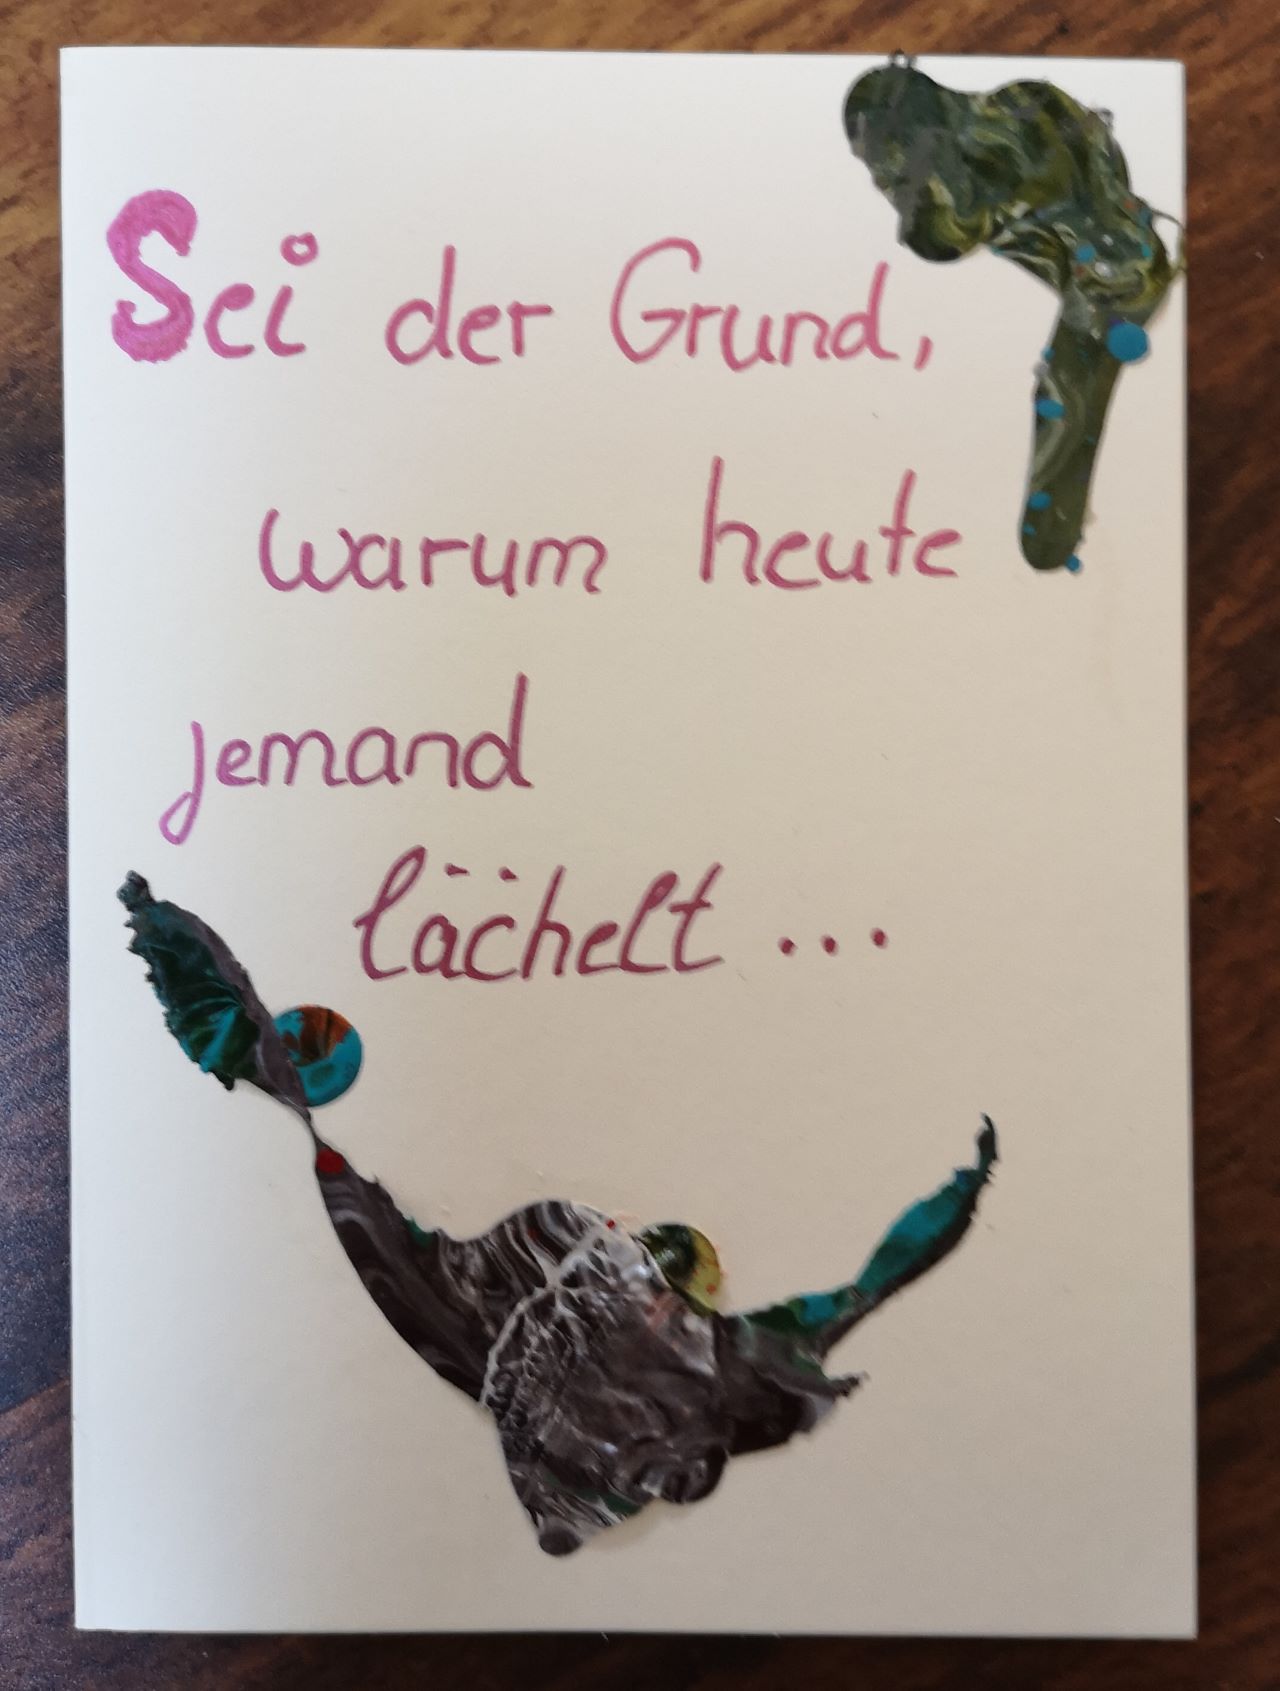 Sei der Grund,
warum heute
jemand
lächelt...